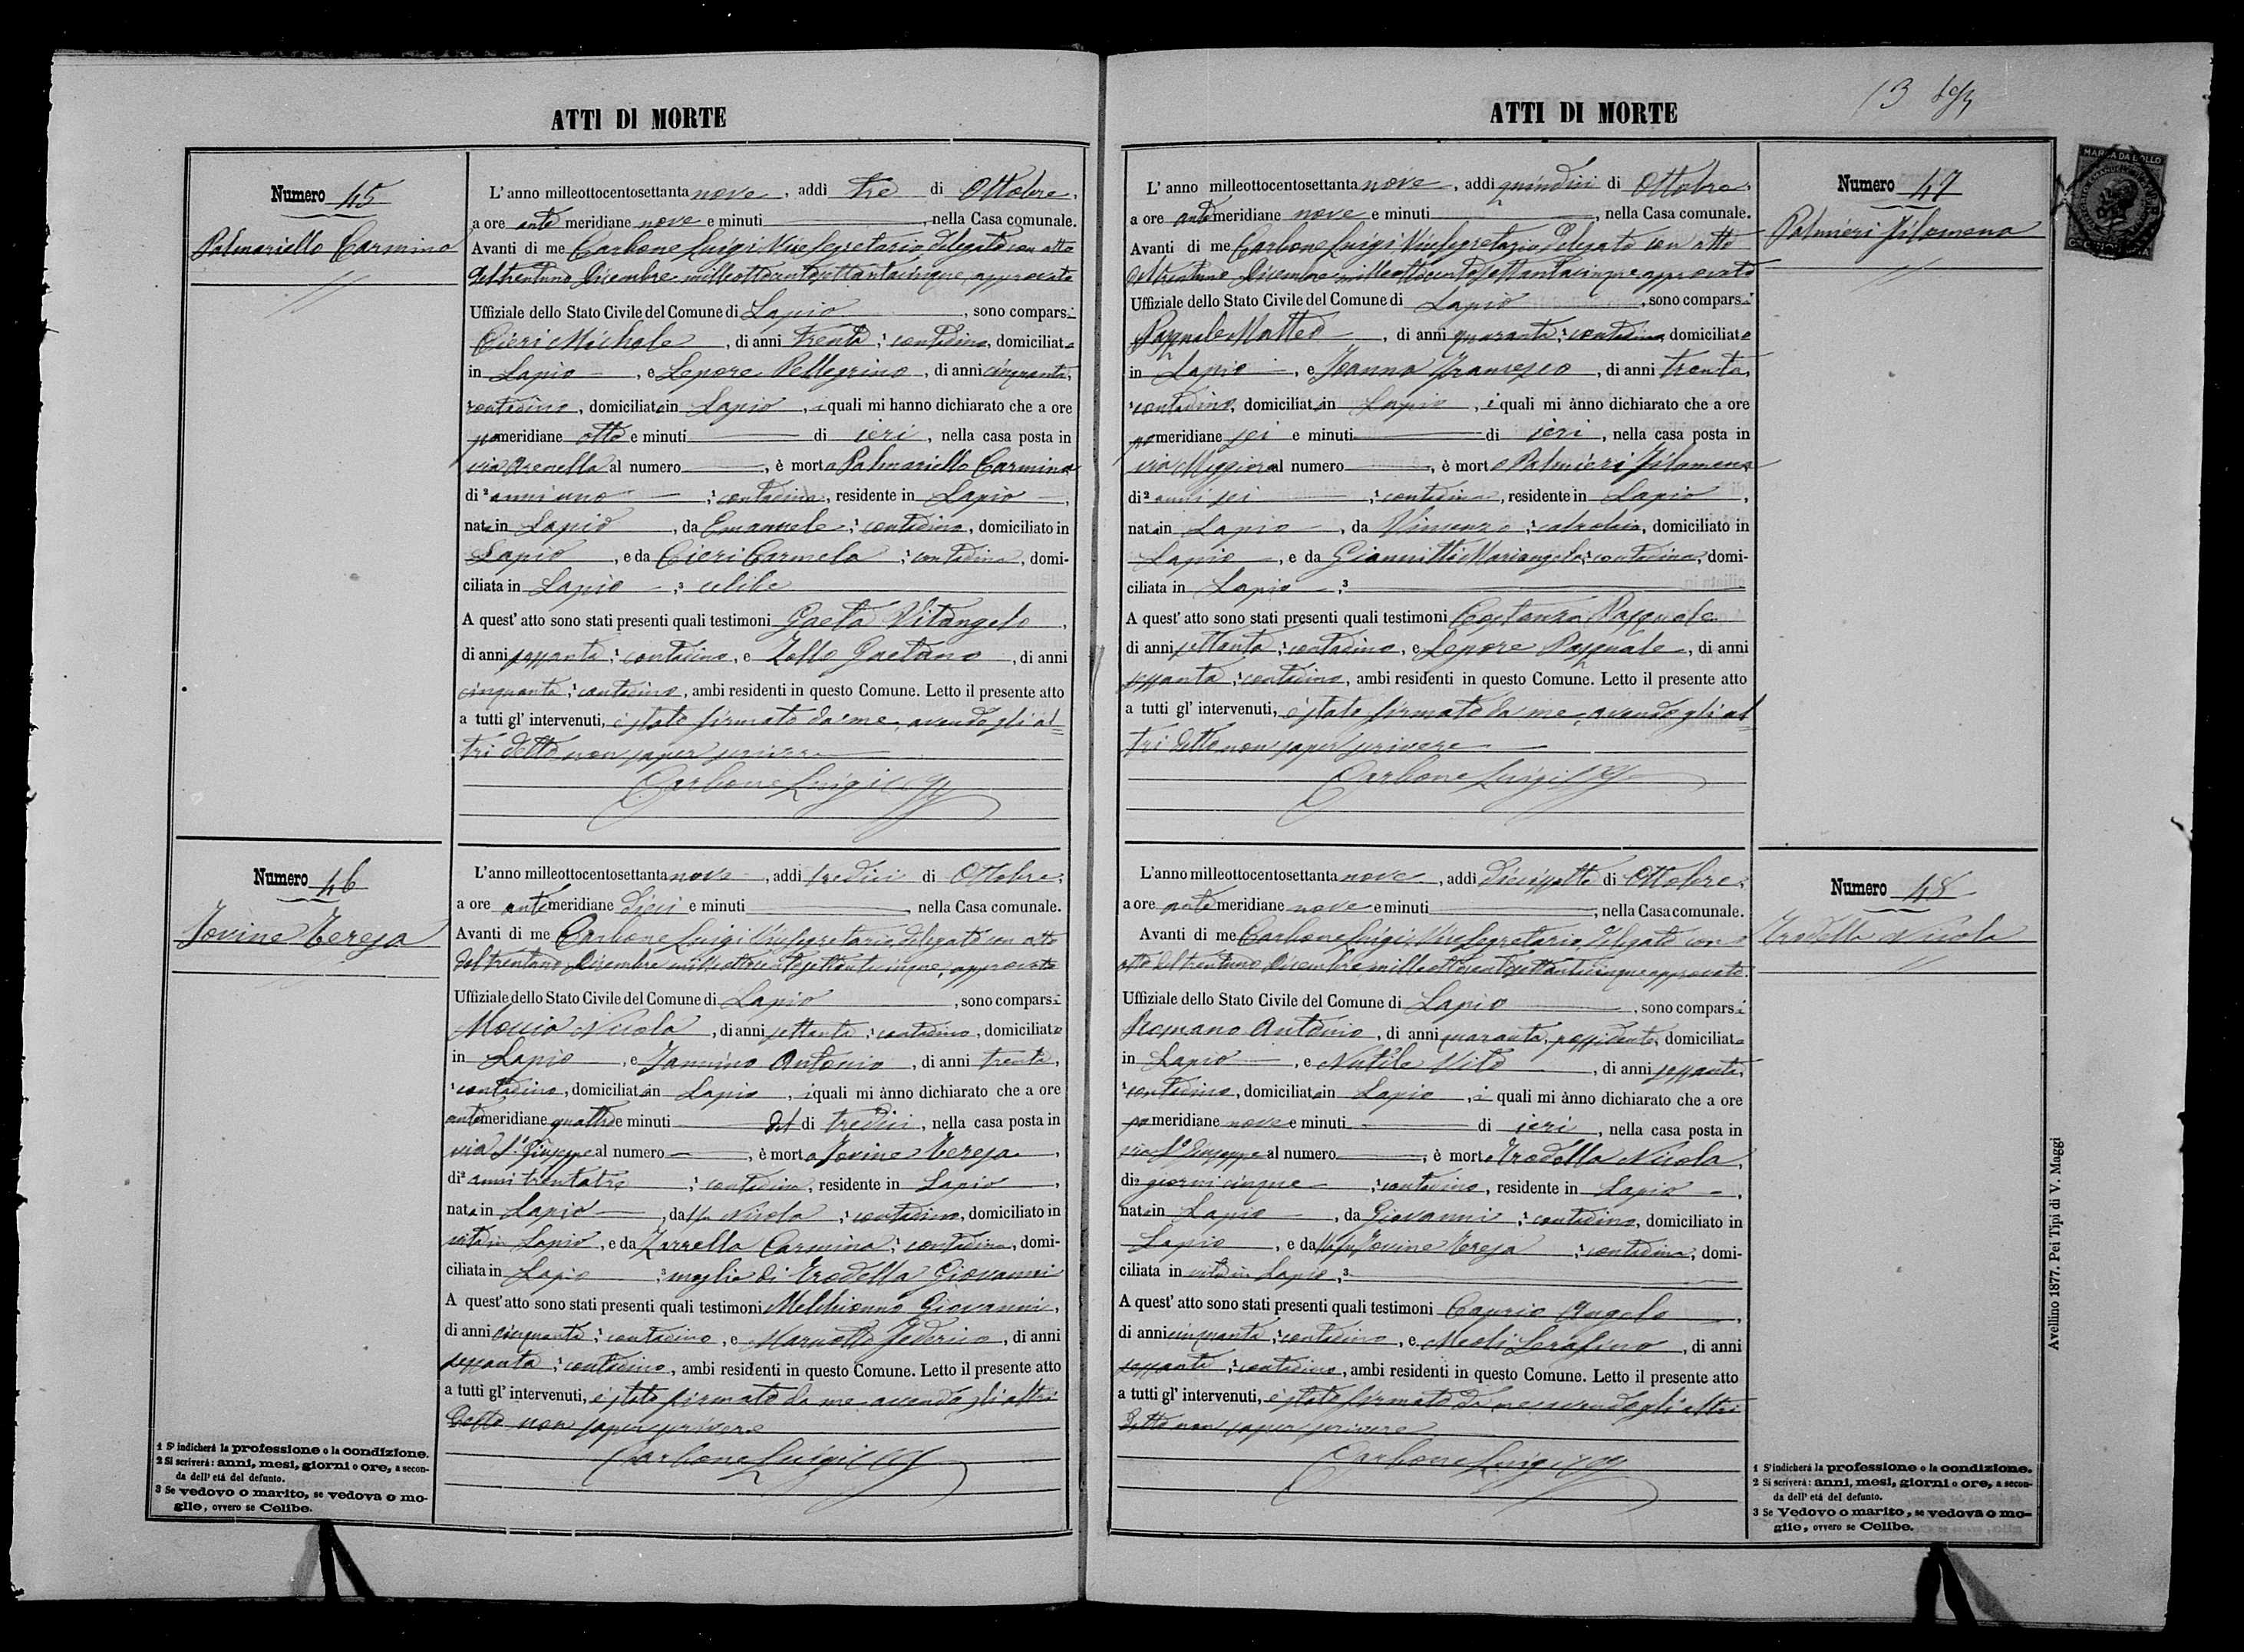 ATTI DI MORTE
Numero 45
Palmariello Carmino
L' anno milleottocentosettanta nove, addì tre di Ottobre,
a ore ante meridiane nove e minuti, nella Casa comunale.
Avanti di me Carbone Luigi Vice Segretario delegato con atto
del trentuno Dicembre milleottocentosettantacinque, approvato
Uffiziale dello Stato Civile del Comune di Lapio, sono comparsi
Cieri Michele, di anni trenta, contadino, domiciliato
in Lapio, e Lepore Pellegrino, di anni cinquanta,
contadino, domiciliato in Lapio, i quali mi hanno dichiarato che a ore
pomeridiane otto e minuti di ieri, nella casa posta in
via Arenella al numero, è morto Palmariello Carmino
di 2 anni uno, contadino, residente in Lapio,
nato in Lapio, da Emanuele, contadino, domiciliato in
Lapio, e da Cieri Carmela, contadina, domi-
ciliata in Lapio, 3 celibe
A quest' atto sono stati presenti quali testimoni Gaeta Vitangelo,
di anni sessanta, contadino, e Zollo Gaetano, di anni
cinquanta, contadino, ambi residenti in questo Comune. Letto il presente atto
a tutti gl' intervenuti, è stato firmato da me, avendo gli al=
tri detto non saper scrivere
Carbone Luigi
Numero 46
Iovine Teresa
L'anno milleottocentosettanta nove, addì tredici di Ottobre,
a ore ante meridiane dieci e minuti, nella Casa comunale.
Avanti di me Carbone Luigi Vice Segretario delegato con atto
del trentuno Dicembre milleottocentosettantacinque, approvato
Uffiziale dello Stato Civile del Comune di Lapio, sono comparsi
Moccia Nicola, di anni settanta, contadino, domiciliato
in Lapio, e Iannino Antonio, di anni trenta,
1 contadino, domiciliato in Lapio, i quali mi ànno dichiarato che a ore
antemeridiane quattro e minuti del di tredici, nella casa posta in
via S. Giuseppe al numero, è morta Iovine Teresa,
di 2 anni trentatre, contadina, residente in Lapio,
nata in Lapio, da fu Nicola, contadino, domiciliato in
vita in Lapio, e da Zarrella Carmina, contadina, domi-
ciliata in Lapio, 3 moglie di Trodella Giovanni
A quest' atto sono stati presenti quali testimoni Melchionno Giovanni,
di anni cinquanta, contadino, e Marnotto Federico, di anni
sessanta, contadino, ambi residenti in questo Comune. Letto il presente atto
a tutti gl' intervenuti, è stato firmato da me avendo gli altri
detto non saper scrivere
Carbone Luigi
1 S' indicherà la professione o la condizione.
2 Si scriverà: anni, mesi, giorni o ore, a secon-
da dell' età del defunto.
3 Se vedovo o marito, se vedova o mo-
glie, ovvero se Celibe.
ATTI DI MORTE
13
MARCA DA BOLLO
Numero 47
Palmieri Filomena
L' anno milleottocentosettanta nove, addì quindici di Ottobre,
a ore ante meridiane nove e minuti, nella Casa comunale.
Avanti di me Carbone Luigi Vice Segretario Delegato con atto
del trentuno Dicembre milleottocentosettantacinque approvato
Uffiziale dello Stato Civile del Comune di Lapio, sono comparsi
Pasquale Matteo, di anni quaranta, contadino, domiciliato
in Lapio, e Ioanna Francesco, di anni trenta,
1 contadino, domiciliato in Lapio, i quali mi ànno dichiarato che a ore
pomeridiane sei e minuti di ieri, nella casa posta in
via Maggiore al numero, è morta Palmieri Filomena
di 2 anni sei, contadina, residente in Lapio,
nata in Lapio, da Vincenzo, calzolaio, domiciliato in
Lapio, e da Giannitti Mariangela, contadina, domi-
ciliata in Lapio, 3
A quest' atto sono stati presenti quali testimoni Costanza Pasquale
di anni settanta, contadino, e Lepore Pasquale, di anni
sessanta, contadino, ambi residenti in questo Comune. Letto il presente atto
a tutti gl' intervenuti, è stato firmato da me, avendo gli al=
tri detto non saper scrivere
Carbone Luigi
Numero 48
Trodella Nicola
L' anno milleottocentosettanta nove, addì diciassette di Ottobre,
a ore ante meridiane nove e minuti, nella Casa comunale.
Avanti di me Carbone Luigi, Vice Segretario, delegato con
atto del trentuno Dicembre milleottocentosettantacinque approvato
Uffiziale dello Stato Civile del Comune di Lapio, sono comparsi
Romano Antonio, di anni quaranta, possidente, domiciliato
in Lapio, e Nutile Vito, di anni sessanta,
1 contadino, domiciliato in Lapio, i quali mi ànno dichiarato che a ore
pomeridiane nove e minuti di ieri, nella casa posta in
via S. Giuseppe al numero, è morto Trodella Nicola,
di 2 giorni cinque, contadino, residente in Lapio,
nato in Lapio, da Giovanni, contadino, domiciliato in
Lapio, e da fu Iovine Teresa, contadina, domi-
ciliata in vita in Lapio, 3
A quest' atto sono stati presenti quali testimoni Caprio Angelo,
di anni cinquanta, contadino, e Meoli Serafino, di anni
sessanta, contadino, ambi residenti in questo Comune. Letto il presente atto
a tutti gl' intervenuti, è stato firmato da me avendo gli altri
detto non saper scrivere
Carbone Luigi
1 S' indicherà la professione o la condizione.
2 Si scriverà: anni, mesi, giorni o ore, a secon-
da dell' età del defunto.
3 Se Vedovo o marito, se vedova o mo-
glie, ovvero se Celibe.
Avellino 1877. Pei Tipi di V. Maggi